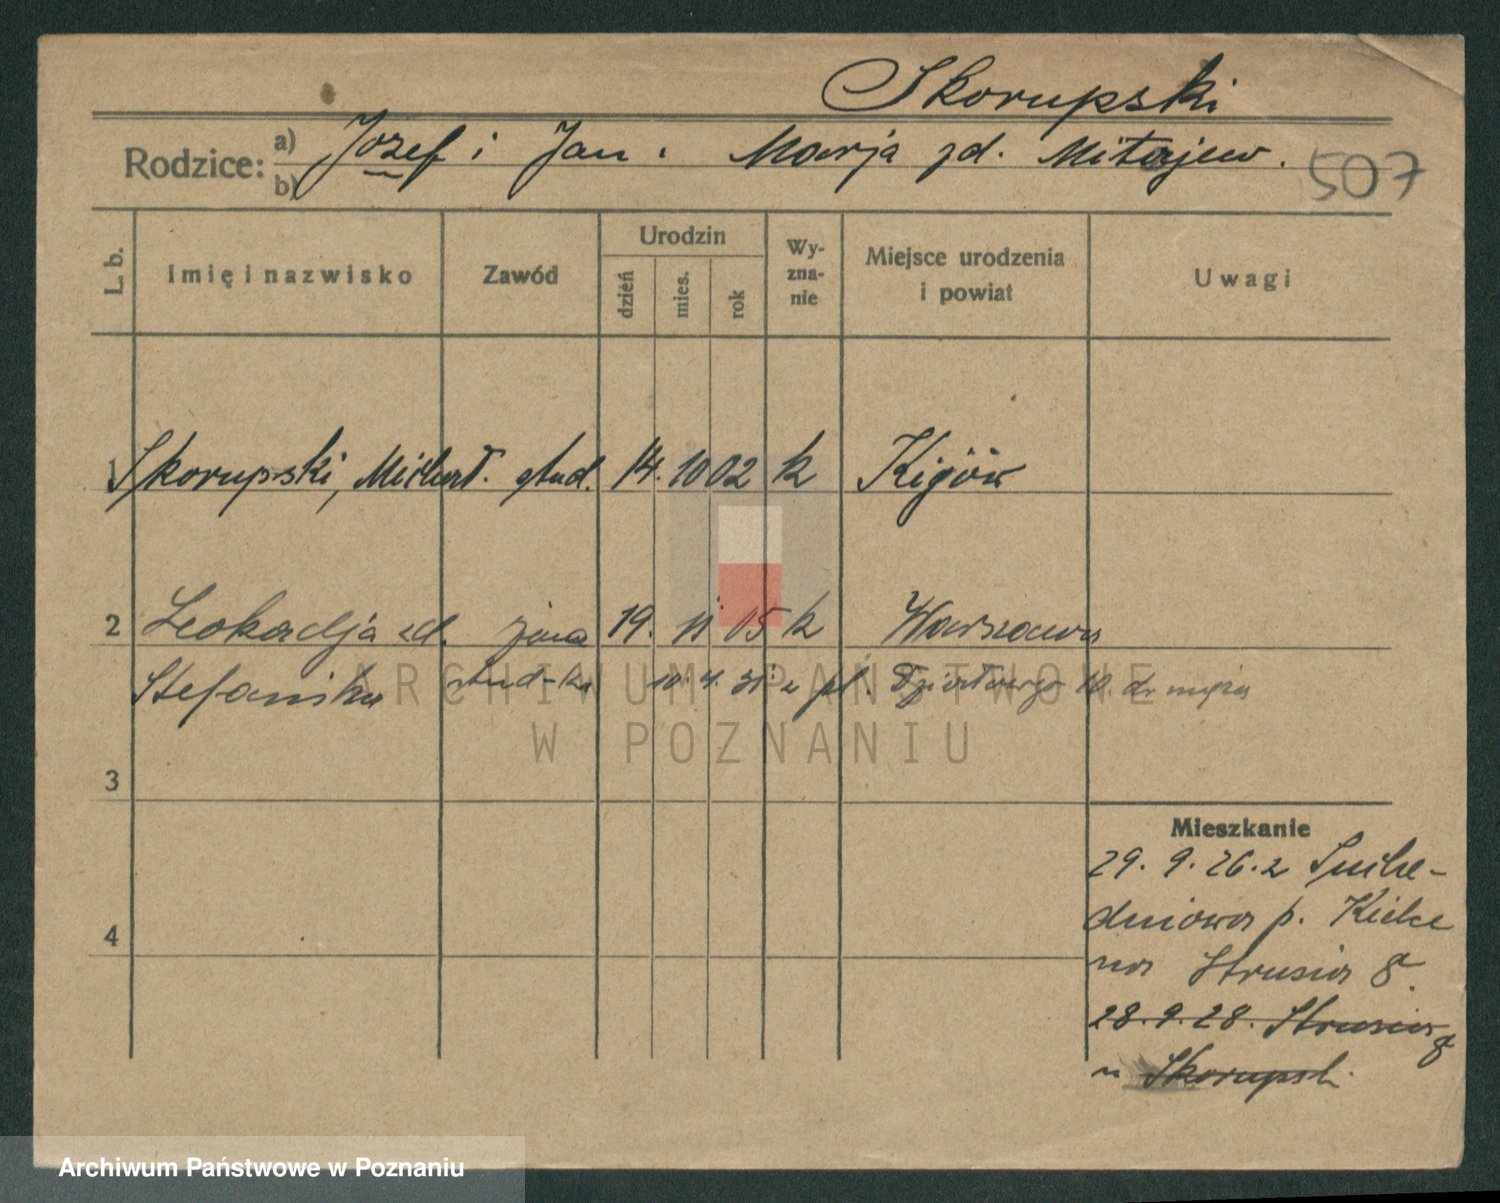 Skorupski
Rodzice: a) Józef i Jan i Marja zd. Mitajew.
b)
507
L. b. Imię i nazwisko Zawód Urodzin dzień mies. rok Wyznanie Miejsce urodzenia i powiat Uwagi
1 Skorupski, Michał. stud. 14. 10 02 k Kijów
2 Leokadja zd. żona 19. 11 05 k Warszawa
Stefańska stud-ka 10. 4. 31 z pl. 10. do męża
3
4
Mieszkanie
29. 9. 26. z Suche-
dniowa p. Kielce
na Strusia 8.
28. 9. 28. Strusia 8
u Skorupski.
ARCHIWUM PAŃSTWOWE
W POZNANIU
Archiwum Państwowe w Poznaniu